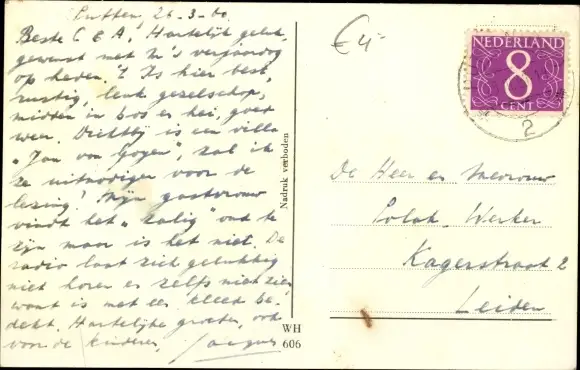 Putten, 26-3-60.
Beste C & A, Hartelijk geluk,
gewenst met M's verjaardag
op heden. 't Is hier best,
rustig, leuk gezelschap,
midden in bos en hei, goed
weer. Dichtbij is een villa
"Jan van Goyen", zal ik
ze uitnodigen voor de
lezing? Mijn gastvrouw
vindt het "zalig" oud te
zijn maar is het niet. De
radio laat zich gelukkig
niet horen en zelfs niet zien,
want is met een kleed be-
dekt. Hartelijke groeten, ook
voor de kinderen,
Nadruk verboden
WH
606
€4,-
NEDERLAND
8
CENT
2
De Heer en Mevrouw
Polak-Werker
Kagerstraat 2
Leiden